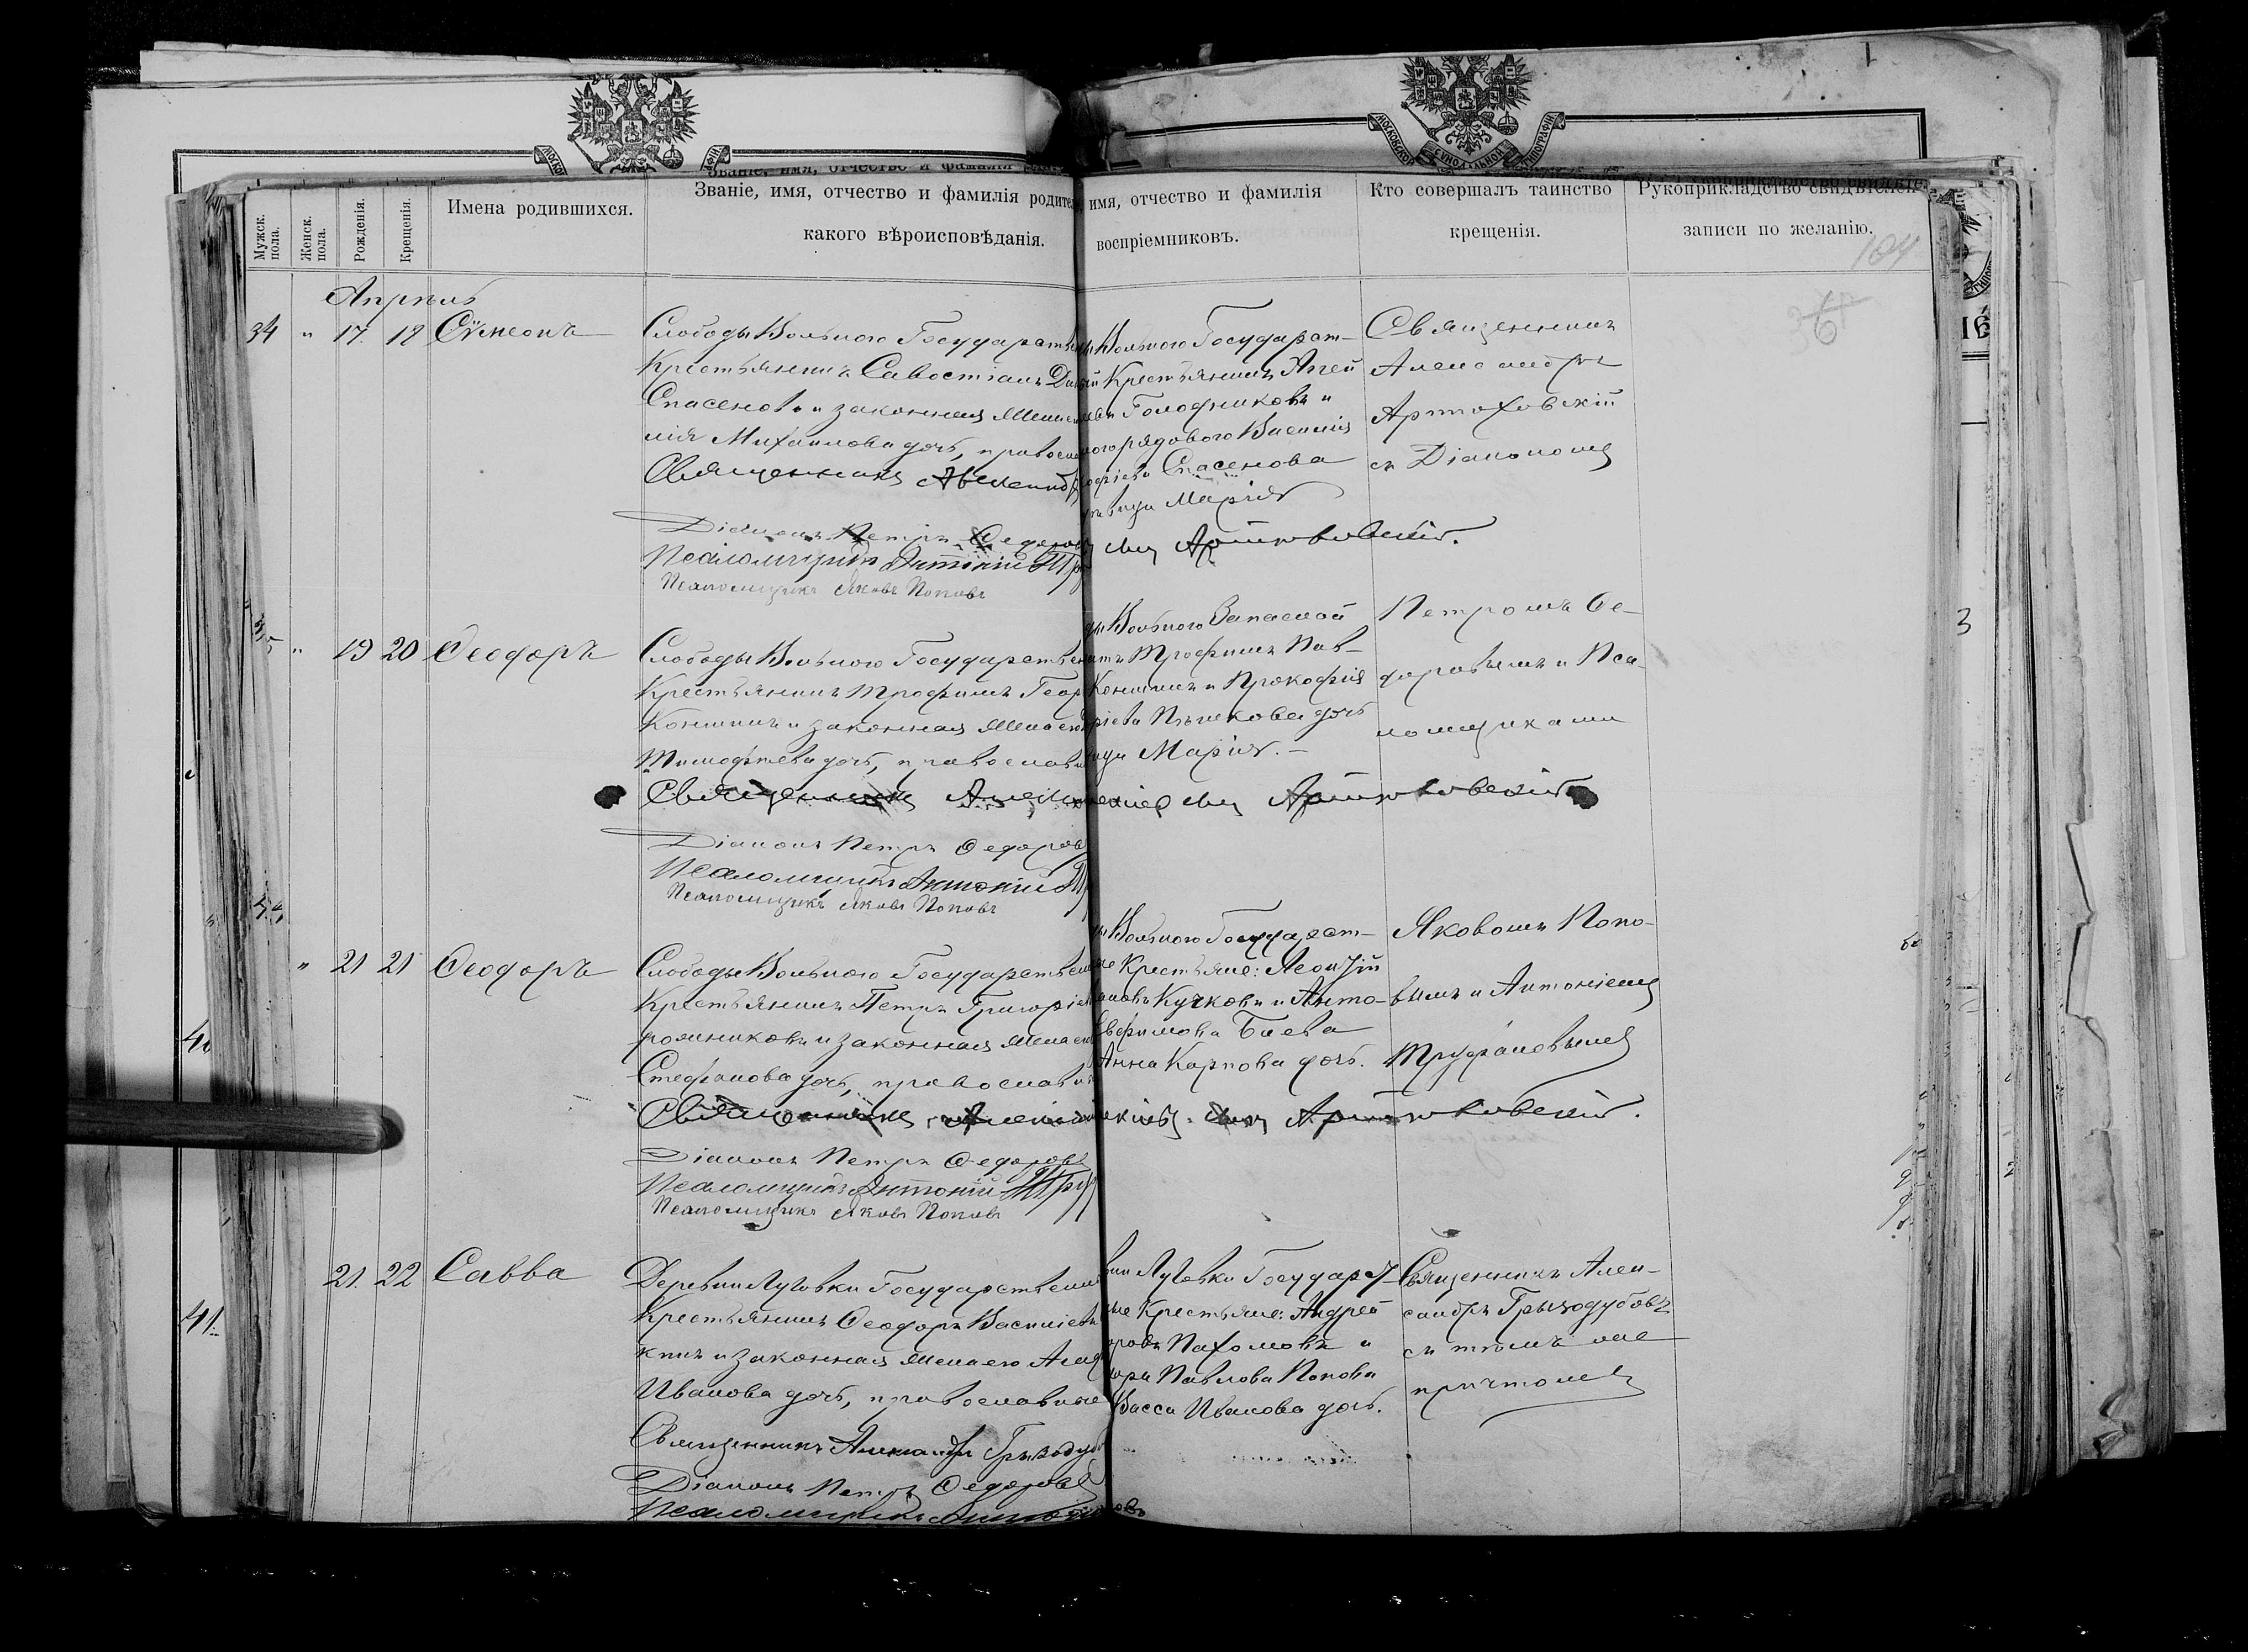 МОСКОВСКОЙ СѴНОДАЛЬНОЙ ТИПОГРАФІИ
Мужск. пола.
Женск. пола.
Рожденія.
Крещенія.
Имена родившихся.
Званіе, имя, отчество и фамилія родител
какого вѣроисповѣданія.
имя, отчество и фамилія
воспріемниковъ.
Кто совершалъ таинство
крещенія.
Рукоприкладство свидѣтелей
записи по желанію.
104
Апрѣль
34 " 17. 18 Сѵмеонъ
Слободы Вольного Государствен
Крестьянинъ Савостіанъ
Спасеновъ и законная жена
Михаилова дочь, правосла
Священникъ Александр
Діаконъ Петръ Ѳедоровъ
Псаломщикъ Антоній Тр
Псаломщикъ Яковъ Поповъ
ы Вольного Государст-
Крестьянинъ Агей
Голофниковъ и
ного рядового Василія
Спасенова
вица Марія
Артюховскій.
Священникъ
Александръ
Артюховскій
съ Діакономъ
" 19 20 Ѳеодоръ
Слободы Вольного Государствен
Крестьянинъ Трофимъ Геор
Коншинъ и законная жена его
Тимофѣева дочь, православн
Священникъ Алек
Діаконъ Петръ Ѳедоровъ
Псаломщикъ Антоній Т
Псаломщикъ Яковъ Поповъ
ды Вольного Запасной
атъ Трофимъ Пав-
Коншинъ и Прокофія
дочь
ица Марія. –
Артюховскій
Петромъ Ѳе-
доровымъ и Пса-
ломщиками
" 21 21 Ѳеодоръ
Слободы Вольного Государствен
Крестьянинъ Петръ Григоріев
и законная жена его
Стефанова дочь, православн
Священникъ Алек
Діаконъ Петръ Ѳедоровъ
Псаломщикъ Антоній Труф
Псаломщикъ Яковъ Поповъ
ы Вольного Государст-
ые Крестьяне: Леонтій
Кучковъ и Анто-
Евфимова Баева
Анна Карпова дочь.
Артюховскій.
Яковомъ Попо-
вымъ и Антоніемъ
Труфановымъ
21. 22 Савва
Деревни Луговки Государственн
Крестьянинъ Ѳеодоръ Василіевъ
кинъ и законная жена его Агаф
Иванова дочь, православные
Священникъ Александръ Грызодуб
Діаконъ Петръ Ѳедоровъ
Псаломщикъ Антоній
вни Луговки Государст-
ые Крестьяне: Андрей
Пахомовъ и
Павлова Попова
Васса Иванова дочь.
Священникъ Алек-
сандръ Грызодубовъ
съ тѣмъ же
причтомъ
40
41.
3